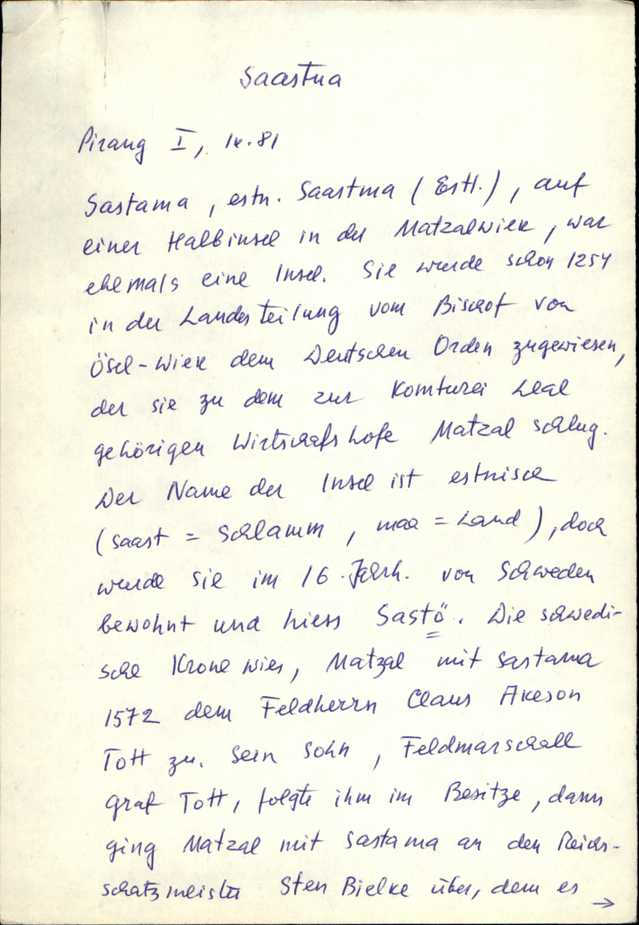 Saastna
Pirang I, 14.81
Sastama, estn. Saastma (Estl.), auf
einer Halbinsel in der Matzalwiek, war
ehemals eine Insel. Sie wurde schon 1254
in der Landesteilung vom Bischof von
Ösel-Wiek dem Deutschen Orden zugewiesen,
der sie zu dem zur Komturei Leal
gehörigen Wirtschafshofe Matzal schlug.
Der Name der Insel ist estnisch
(saast = Schlamm, maa = Land), doch
wurde sie im 16. Jahrh. von Schweden
bewohnt und hiess Sastö. Die schwedi-
sche Krone wies, Matzal mit Sastama
1572 dem Feldherrn Claus Akeson
Tott zu. Sein Sohn, Feldmarschall
Graf Tott, folgte ihm im Besitze, dann
ging Matzal mit Sastama an den Reichs-
schatzmeister Sten Bielke über, dem es
→